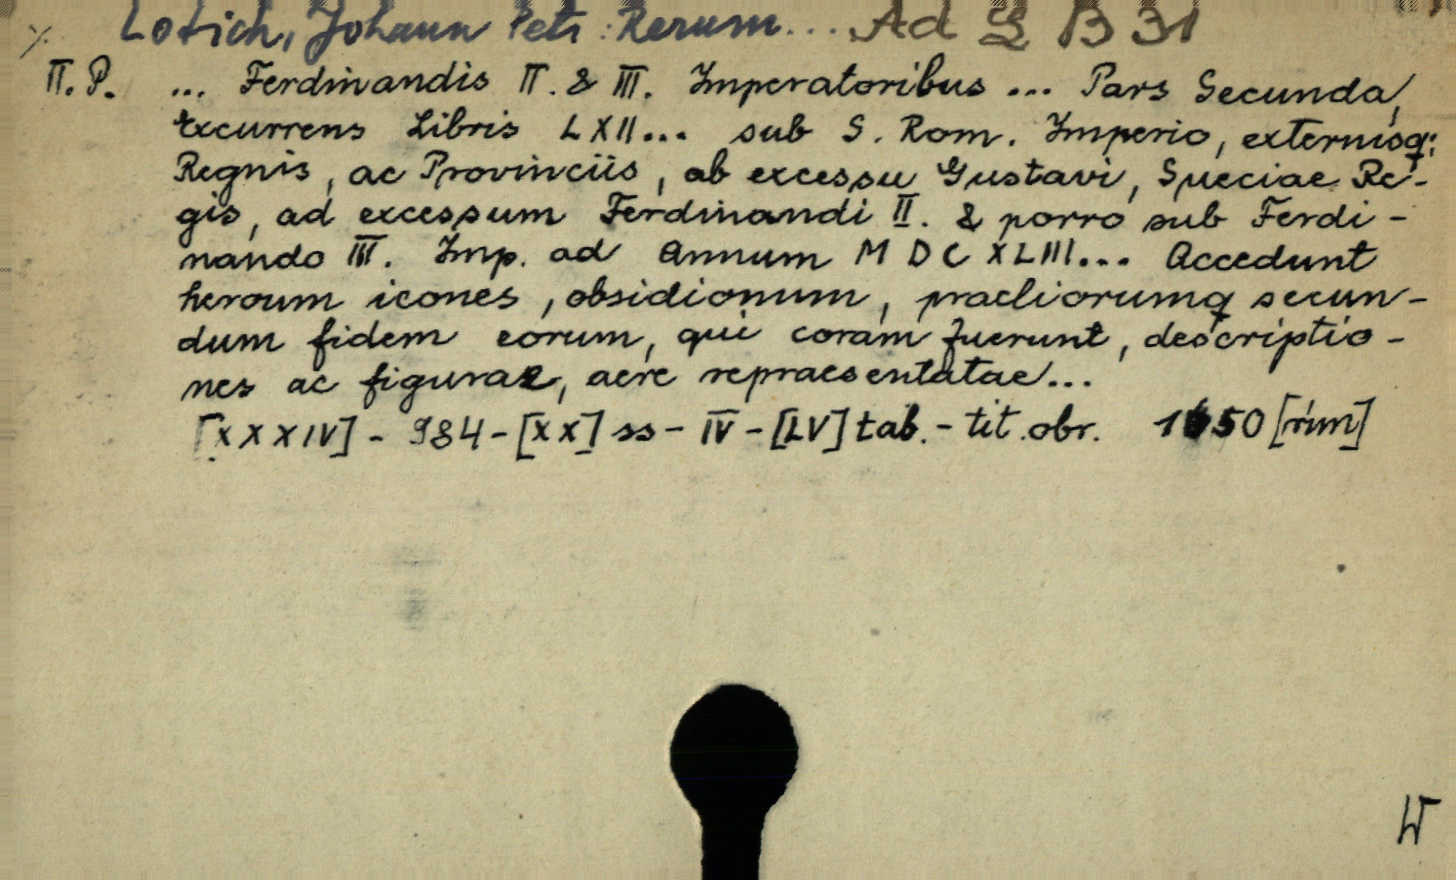 Lotich, Johann Petr: Rerum... Ad L B 31
II. P. ... Ferdinandis II. & III. Imperatoribus ... Pars Secunda,
Excurrens Libris LXII... sub S. Rom. Imperio, externisq;
Regnis, ac Provinciis, ab excessu Gustavi, Sueciae Re-
gis, ad excessum Ferdinandi II. & porro sub Ferdi-
nando III. Imp. ad Annum MDCXLIII... Accedunt
heroum icones, obsidionum, praeliorumq secun-
dum fidem eorum, qui coram fuerunt, descriptio-
nes ac figurae, aere repraesentatae...
[XXXIV] - 984 - [XX] ss - IV - [LV] tab. - tit. obr. 1650 [řím]
W